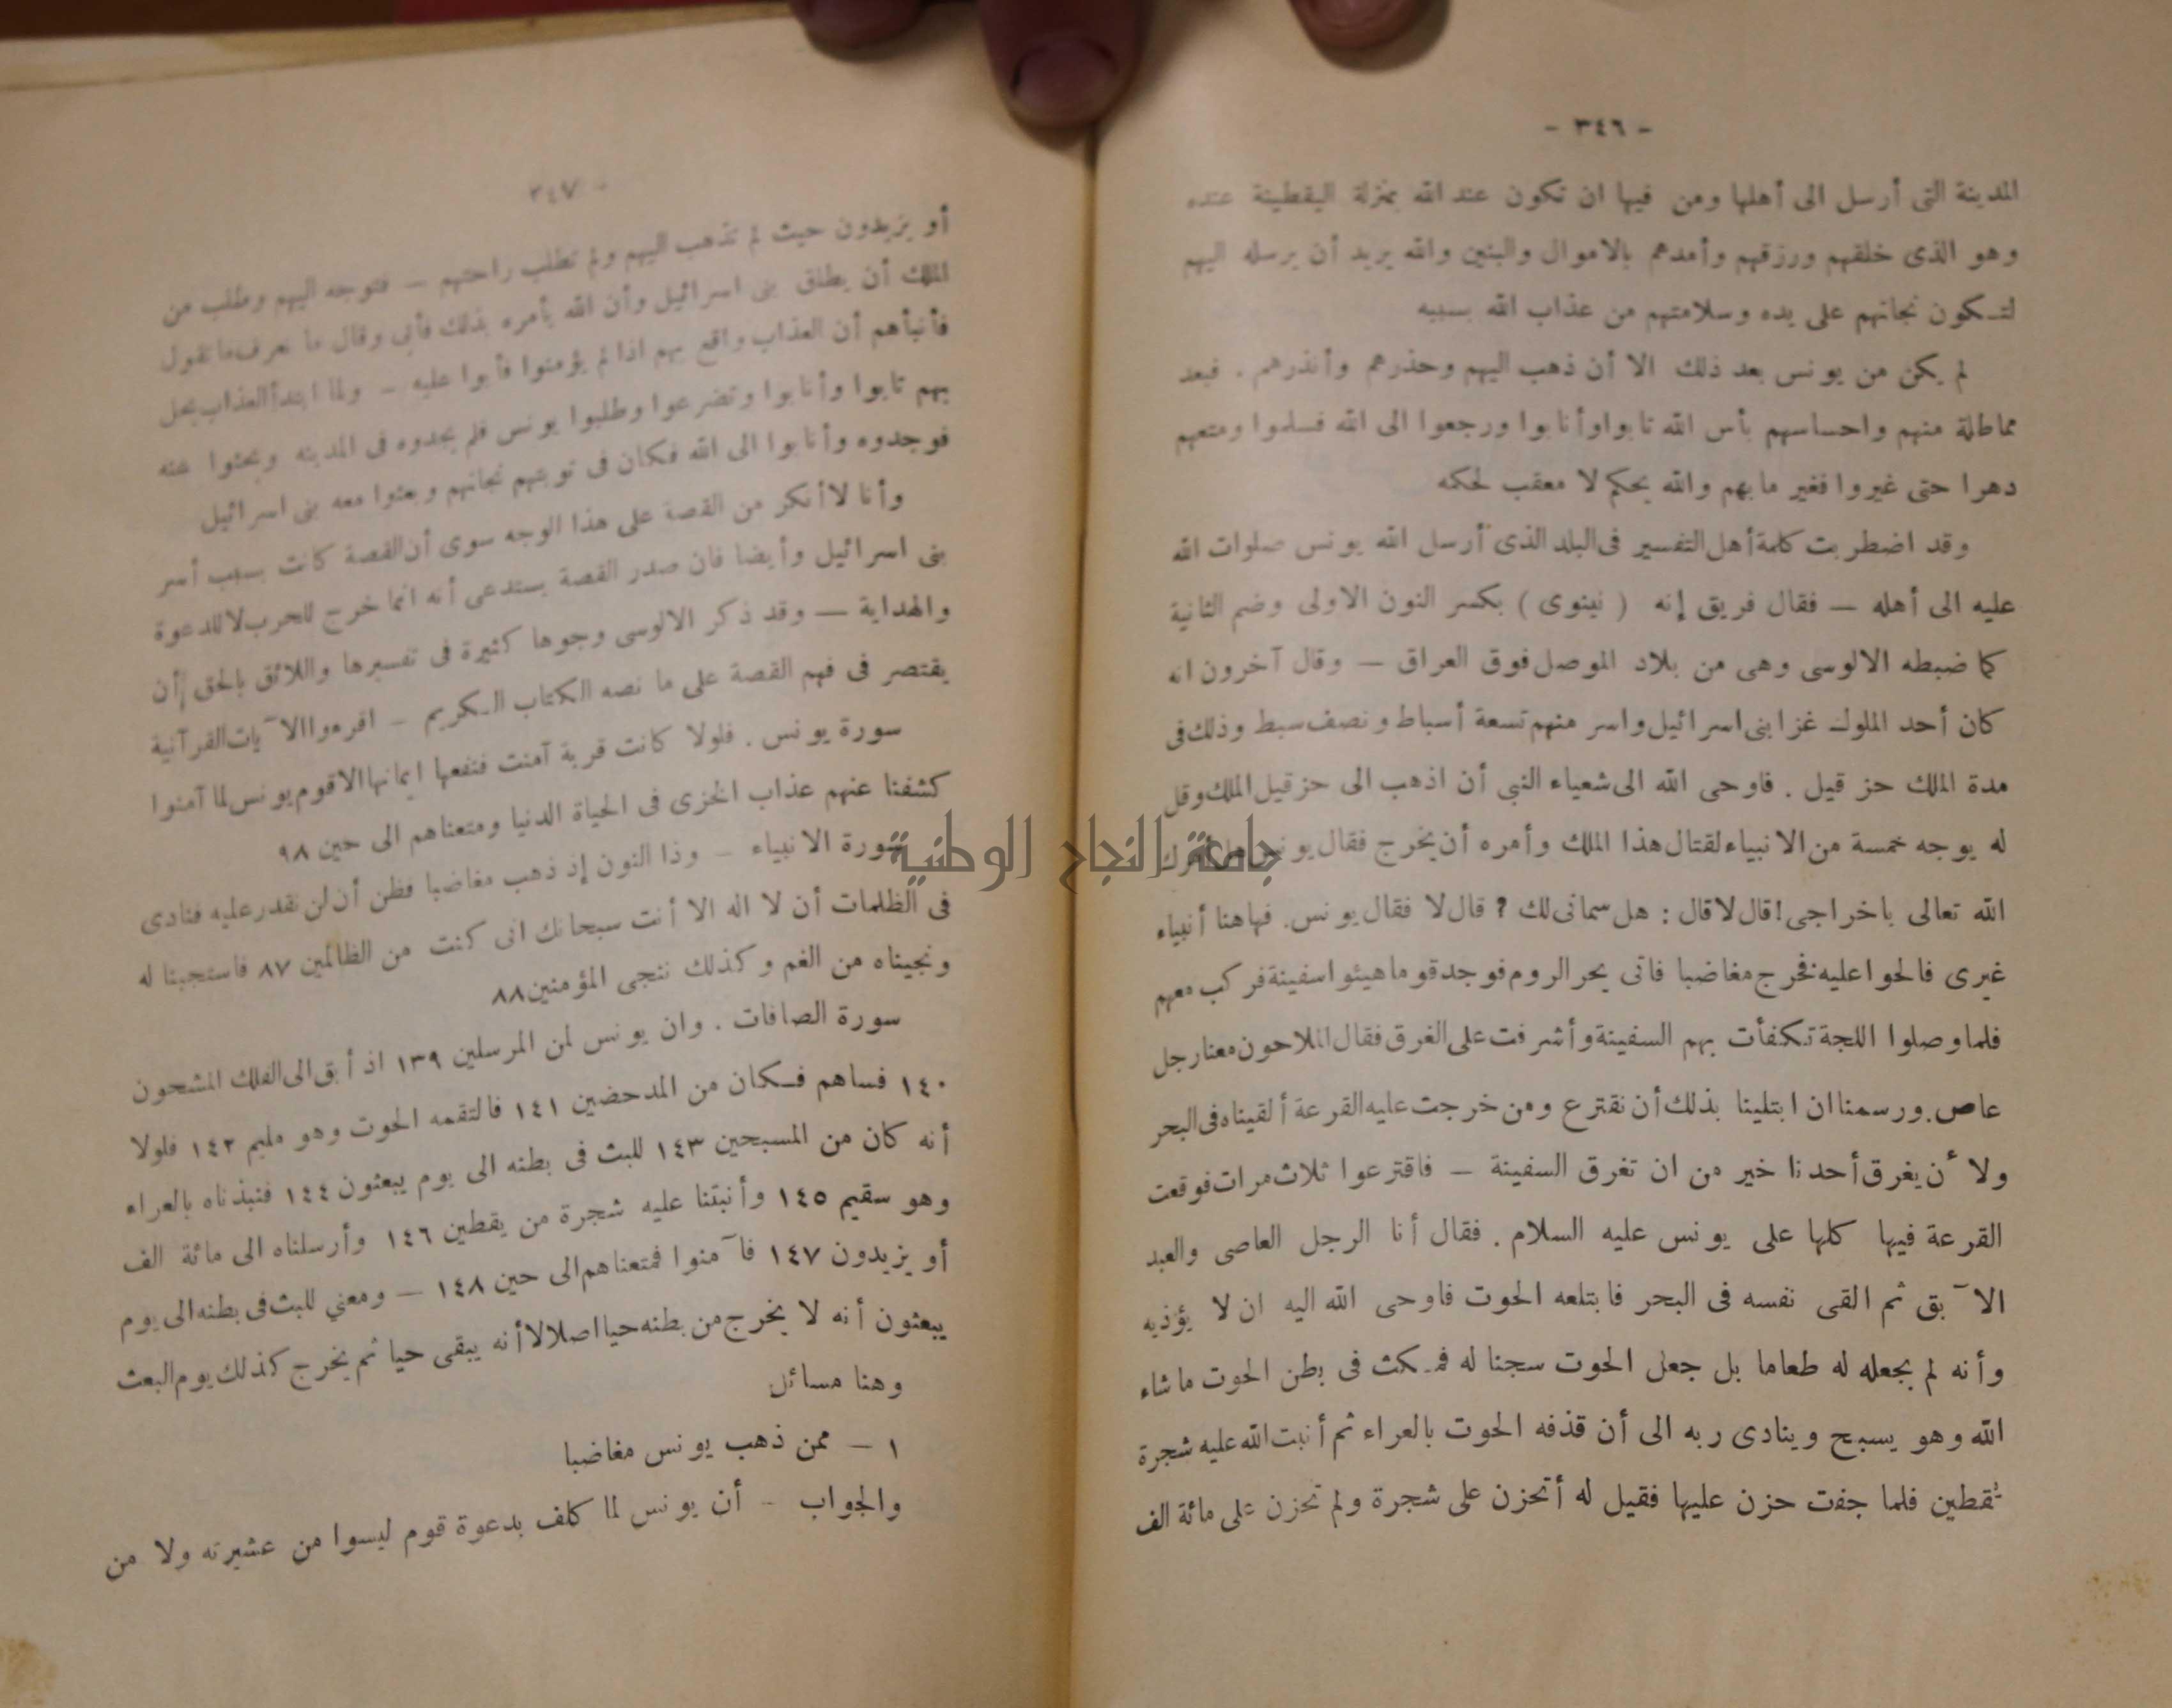 - ٣٤٦ -
المدينة التى أرسل الى أهلها ومن فيها ان تكون عند الله بمنزلة اليقطينة عنده
وهو الذى خلقهم ورزقهم وأمدهم بالاموال والبنين والله يريد أن يرسله اليهم
لتكون نجاتهم على يده وسلامتهم من عذاب الله بسببه
لم يكن من يونس بعد ذلك الا أن ذهب اليهم وحذرهم وأنذرهم . فبعد
مماطلة منهم واحساسهم بأس الله تابوا وأنابوا ورجعوا الى الله فسلموا ومتعهم
دهرا حتى غيروا فغير ما بهم والله يحكم لا معقب لحكمه
وقد اضطربت كلمة أهل التفسير فى البلد الذى أرسل الله يونس صلوات الله
عليه الى أهله — فقال فريق إنه ( نينوى ) بكسر النون الاولى وضم الثانية
كما ضبطه الالوسى وهى من بلاد الموصل فوق العراق — وقال آخرون انه
كان أحد الملوك غزا بنى اسرائيل واسر منهم تسعة أسباط ونصف سبط وذلك فى
مدة الملك حز قيل . فاوحى الله الى شعياء النبى أن اذهب الى حزقيل الملك وقل
له يوجه خمسة من الانبياء لقتال هذا الملك وأمره أن يخرج فقال يونس هل أمرك
الله تعالى باخراجى ! قال لا قال : هل سمانى لك ؟ قال لا فقال يونس . فهاهنا أنبياء
غيرى فالحوا عليه فخرج مغاضبا فاتى بحر الروم فوجد قوما هيئوا سفينة فركب معهم
فلما وصلوا اللجة تكفأت بهم السفينة وأشرفت على الغرق فقال الملاحون معنا رجل
عاص . ورسمنا ان ابتلينا بذلك أن نقترع ومن خرجت عليه القرعة ألقيناه فى البحر
ولأن يغرق أحدنا خير من ان تغرق السفينة — فاقترعوا ثلاث مرات فوقعت
القرعة فيها كلها على يونس عليه السلام . فقال أنا الرجل العاصى والعبد
الآبق ثم القى نفسه فى البحر فابتلعه الحوت فاوحى الله اليه ان لا يؤذيه
وأنه لم يجعله له طعاما بل جعل الحوت سجنا له فمكث فى بطن الحوت ما شاء
الله وهو يسبح وينادى ربه الى أن قذفه الحوت بالعراء ثم أنبت الله عليه شجرة
يقطين فلما جفت حزن عليها فقيل له أتحزن على شجرة ولم تحزن على مائة الف
٣٤٧
أو يزيدون حيث لم تذهب اليهم ولم تطلب راحتهم — فتوجه اليهم وطلب من
الملك أن يطلق بنى اسرائيل وأن الله يأمره بذلك فأبى وقال ما نعرف ما تقول
فأنبأهم أن العذاب واقع بهم اذا لم يؤمنوا فأبوا عليه — ولما ابتدأ العذاب يحل
بهم تابوا وأنابوا وتضرعوا وطلبوا يونس فلم يجدوه فى المدينة وبحثوا عنه
فوجدوه وأنابوا الى الله فكان فى توبتهم نجاتهم وبعثوا معه بنى اسرائيل
وأنا لا أنكر من القصة على هذا الوجه سوى أن القصة كانت بسبب أسر
بنى اسرائيل وأيضا فان صدر القصة يستدعى أنه انما خرج للحرب لا للدعوة
والهداية — وقد ذكر الالوسى وجوها كثيرة فى تفسيرها واللائق بالحق أن
يقتصر فى فهم القصة على ما نصه الكتاب الكريم — اقرءوا الآيات القرآنية
سورة يونس . فلولا كانت قرية آمنت فنفعها ايمانها الا قوم يونس لما آمنوا
كشفنا عنهم عذاب الخزى فى الحياة الدنيا ومتعناهم الى حين ٩٨
سورة الانبياء — وذا النون إذ ذهب مغاضبا فظن أن لن نقدر عليه فنادى
فى الظلمات أن لا اله الا أنت سبحانك انى كنت من الظالمين ٨٧ فاستجبنا له
ونجيناه من الغم وكذلك ننجى المؤمنين ٨٨
سورة الصافات . وان يونس لمن المرسلين ١٣٩ اذ أبق الى الفلك المشحون
١٤٠ فساهم فكان من المدحضين ١٤١ فالتقمه الحوت وهو مليم ١٤٢ فلولا
أنه كان من المسبحين ١٤٣ للبث فى بطنه الى يوم يبعثون ١٤٤ فنبذناه بالعراء
وهو سقيم ١٤٥ وأنبتنا عليه شجرة من يقطين ١٤٦ وأرسلناه الى مائة الف
أو يزيدون ١٤٧ فآمنوا فمتعناهم الى حين ١٤٨ — ومعني للبث فى بطنه الى يوم
يبعثون أنه لا يخرج من بطنه حيا اصلا لا أنه يبقى حيا ثم يخرج كذلك يوم البعث
وهنا مسائل
١ — ممن ذهب يونس مغاضبا
والجواب — أن يونس لما كلف بدعوة قوم ليسوا من عشيرته ولا من
جامعة النجاح الوطنية